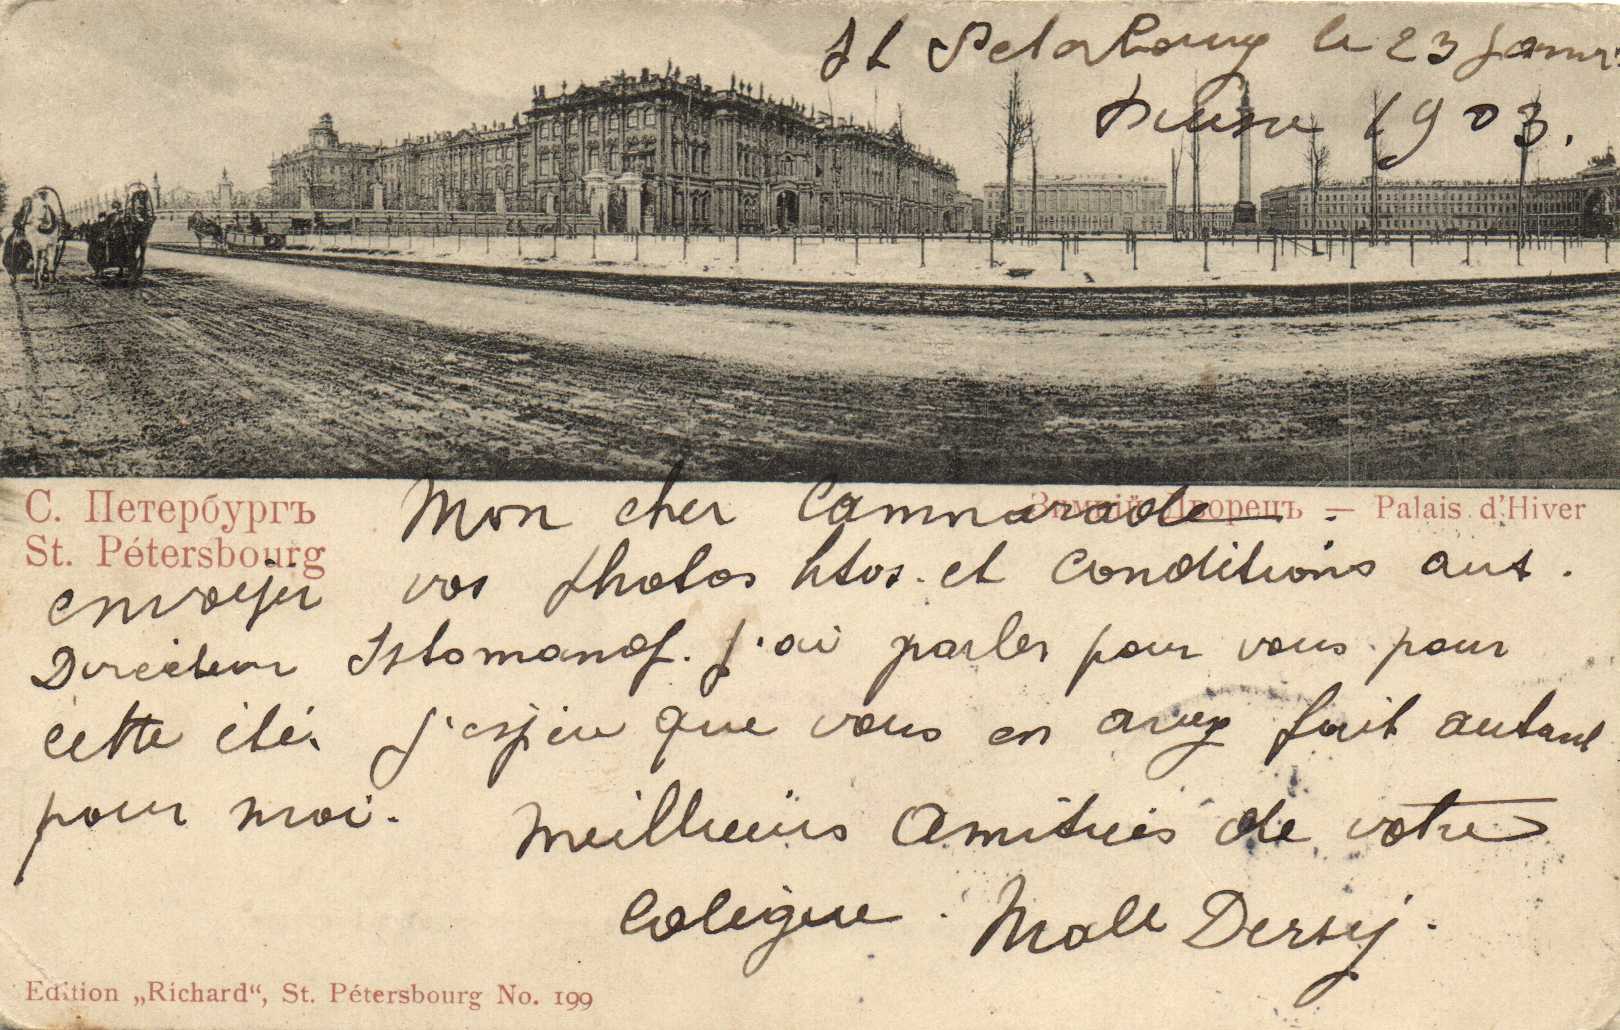 St Petersbourg le 23 Janvi
Russe 1903.
С. Петербургъ
St. Pétersbourg
Зимній Дворецъ — Palais d'Hiver
Mon cher Cammarade.
envoyer vos photos et conditions aux.
Directeur j'ai parler pour vous pour
cette été. j'espère que vous en avez fait autant
pour moi. Meilleurs Amitiés de votre
Colègue.
Edition „Richard“, St. Pétersbourg No. 199